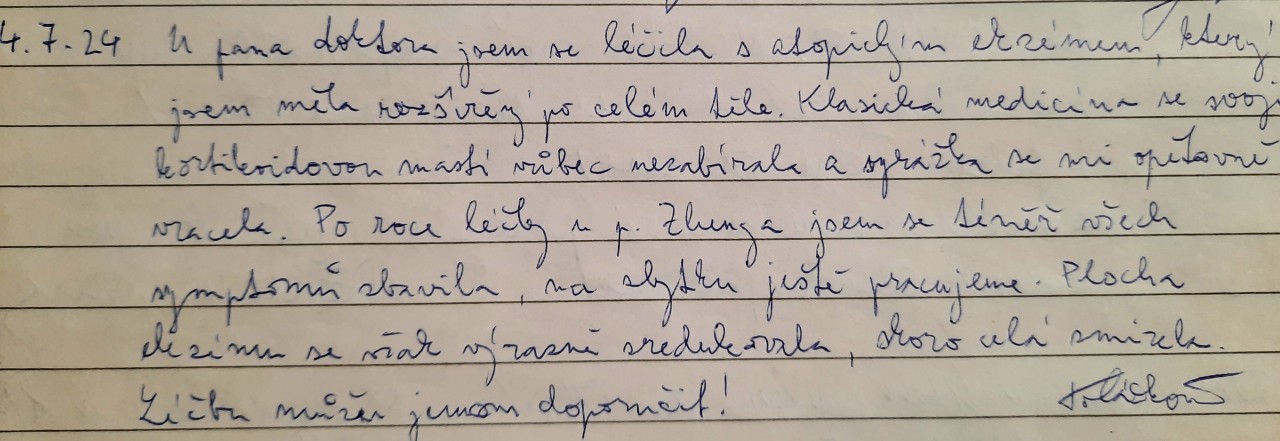 4.7.24 U pana doktora jsem se léčila s atopickým ekzémem, který
jsem měla rozšířený po celém těle. Klasická medicína se svojí
kortikoidovou mastí vůbec nezabírala a vyrážka se mi opětovně
vracela. Po roce léčby u p. Zhenga jsem se téměř všech
symptomů zbavila, na zbytku ještě pracujeme. Plocha
ekzému se však výrazně zredukovala, skoro celá zmizela.
Léčbu můžu jenom doporučit!